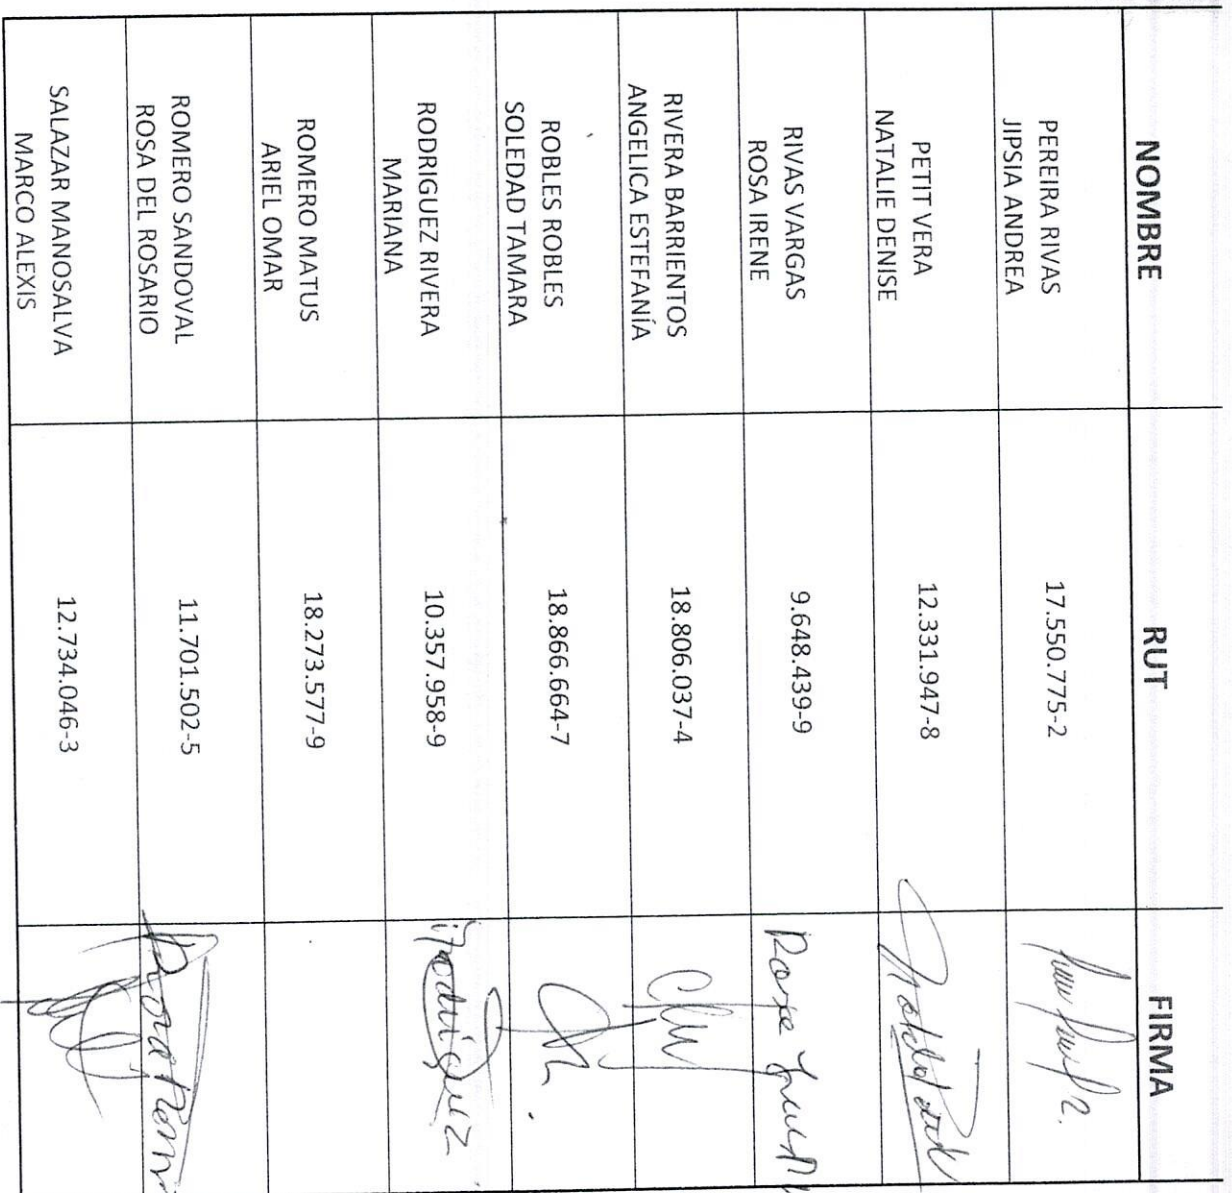 NOMBRE RUT FIRMA
PEREIRA RIVAS
JIPSIA ANDREA
17.550.775-2
PETIT VERA
NATALIE DENISE
12.331.947-8
RIVAS VARGAS
ROSA IRENE
9.648.439-9
Rosa
RIVERA BARRIENTOS
ANGELICA ESTEFANÍA
18.806.037-4
ROBLES ROBLES
SOLEDAD TAMARA
18.866.664-7
RODRIGUEZ RIVERA
MARIANA
10.357.958-9
ROMERO MATUS
ARIEL OMAR
18.273.577-9
ROMERO SANDOVAL
ROSA DEL ROSARIO
11.701.502-5
SALAZAR MANOSALVA
MARCO ALEXIS
12.734.046-3